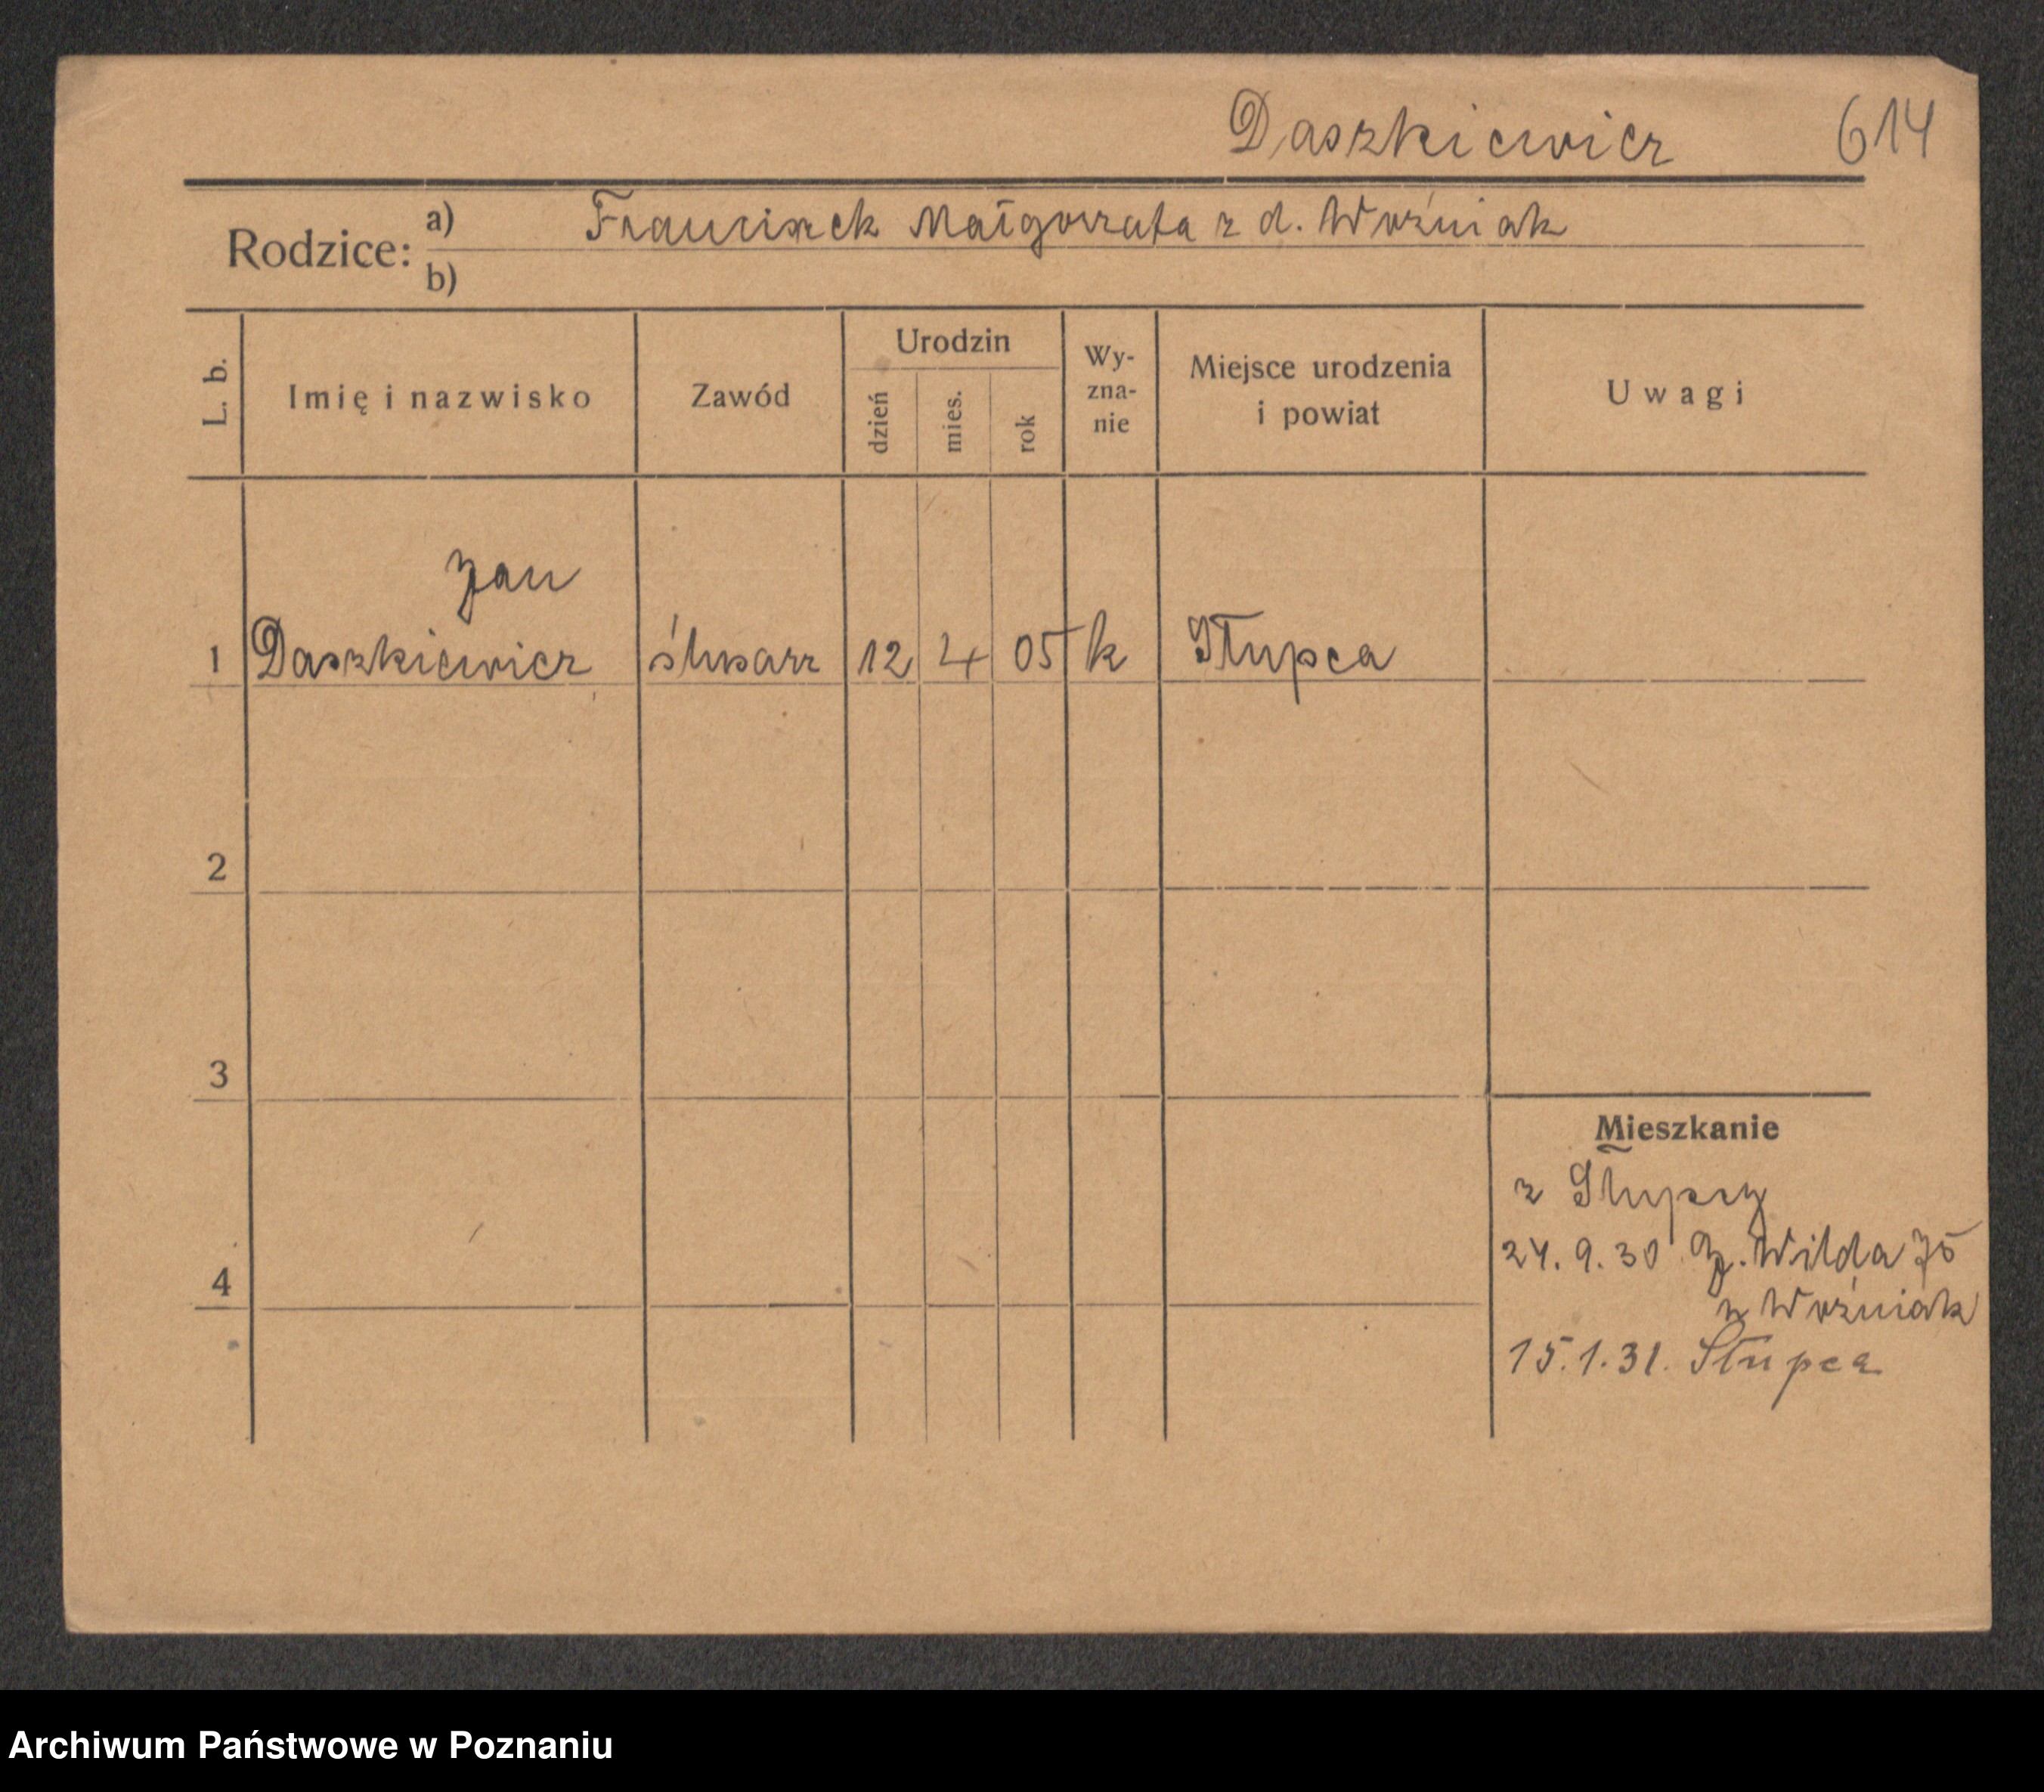 Daszkiewicz 614
Rodzice: a) Franciszek Małgorzata z d. Woźniak
b)
L. b. Imię i nazwisko Zawód Urodzin dzień mies. rok Wy-zna-nie Miejsce urodzenia i powiat Uwagi
Jan
1 Daszkiewicz ślusarz 12 4 05 k Słupca
2
3
Mieszkanie
z Słupcy
24. 9. 30 G. Wilda 75
4
u Woźniak
15. 1. 31. Słupca
Archiwum Państwowe w Poznaniu